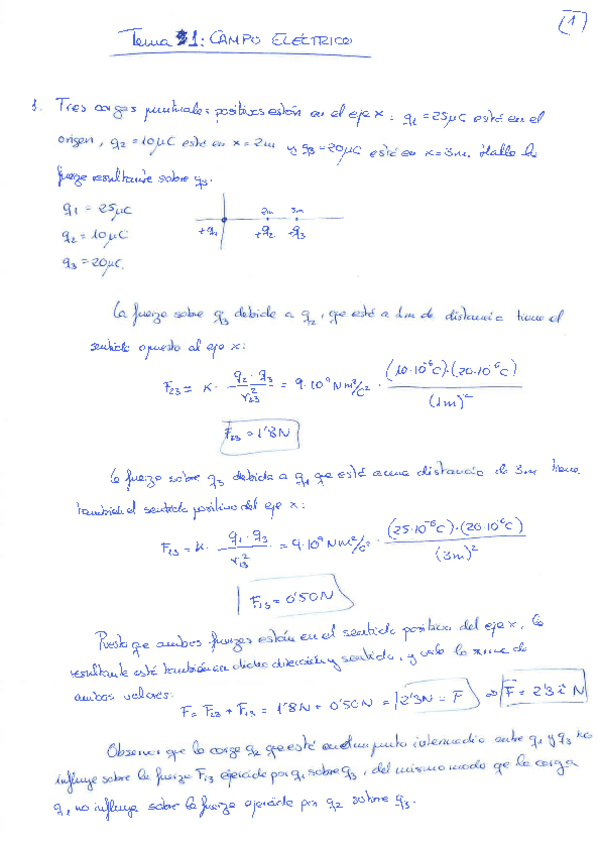 (1)
Tema 1: CAMPO ELÉCTRICO
1. Tres cargas puntuales positivas están en el eje x: q1 = 25μC está en el
origen, q2 = 10μC está en x = 2m y q3 = 20μC está en x = 3m. Halle la
fuerza resultante sobre q3.
q1 = 25μC
q2 = 10μC
q3 = 20μC.
2m 3m
+q1 +q2 +q3
La fuerza sobre q3 debida a q2, que está a 1m de distancia tiene el
sentido opuesto al eje x:
F23 = K · q2 · q3 / r23² = 9·10⁹ N m²/C² · (10·10⁻⁶C)·(20·10⁻⁶C) / (1m)²
F23 = 1'8N
La fuerza sobre q3 debida a q1 que está a una distancia de 3m tiene
también el sentido positivo del eje x:
F23 = K · q1 · q3 / r13² = 9·10⁹ N m²/C² · (25·10⁻⁶C)·(20·10⁻⁶C) / (3m)²
F13 = 0'50N
Puesto que ambas fuerzas están en el sentido positivo del eje x, la
resultante está también en dicha dirección y sentido, y vale la suma de
ambos valores:
F = F23 + F13 = 1'8N + 0'50N = 2'3N = F ⇒ F = 2'3 i N
Observar que la carga q2 que está en un punto intermedio entre q1 y q3 no
influye sobre la fuerza F13 ejercida por q1 sobre q3, del mismo modo que la carga
q1 no influye sobre la fuerza ejercida por q2 sobre q3.